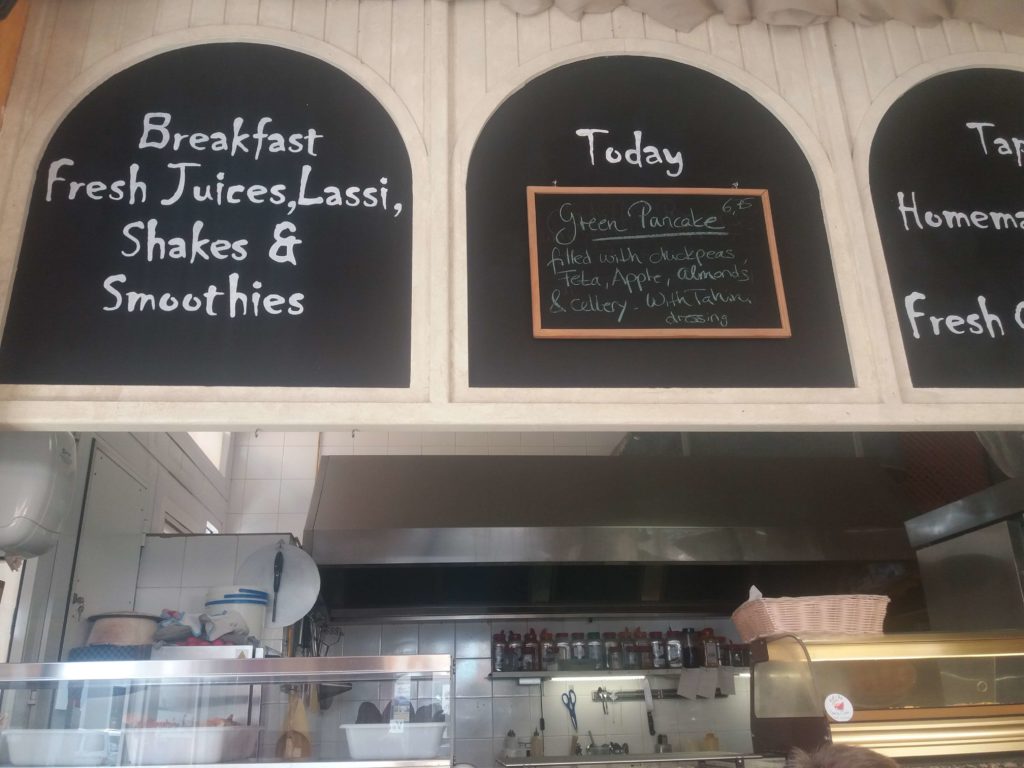 Breakfast
Fresh Juices, Lassi,
Shakes &
Smoothies
Today
Green Pancake 6,75
filled with chickpeas,
Feta, Apple, almonds
& cellery. With Tahini
dressing
Tap
Homema
Fresh